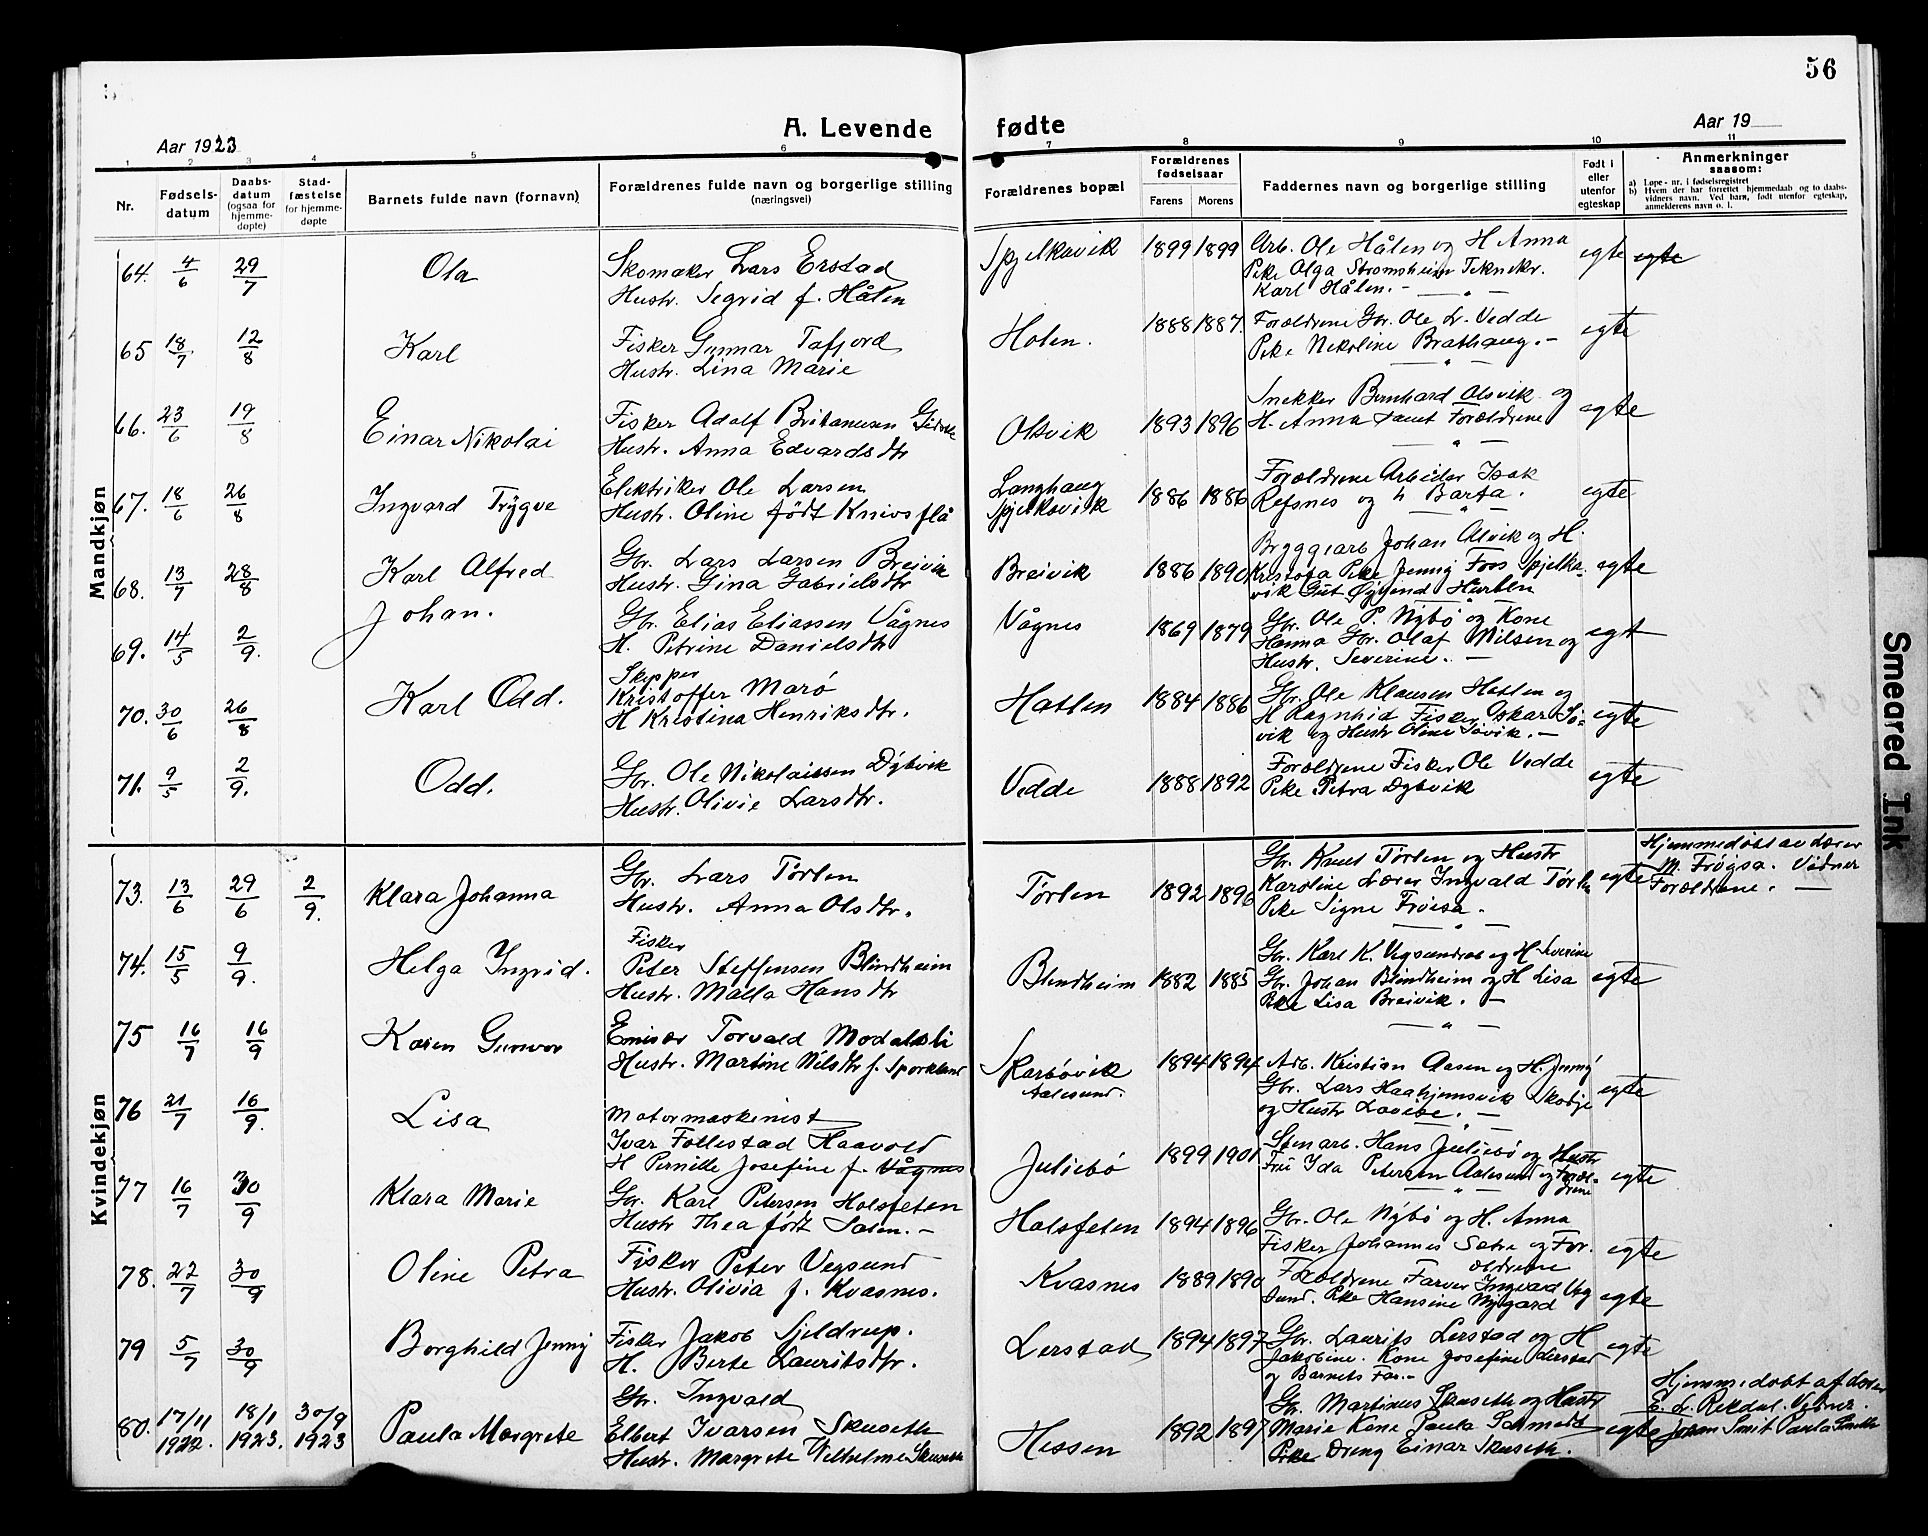 56
A. Levende
fødte
Aar 1923
Aar 19
1 2 3 4 5 6 7 8 9 10 11
Nr.
Fødsels-
datum
Daabs-
datum
(ogsaa for
hjemme-
døpte)
Stad-
fæstelse
for hjemme-
døpte
Barnets fulde navn (fornavn)
Forældrenes fulde navn og borgerlige stilling
(næringsvei)
Forældrenes bopæl
Forældrenes
fødselsaar
Farens Morens
Faddernes navn og borgerlige stilling
Født i
eller
utenfor
egteskap
Anmerkninger
saasom:
a) Løpe-nr. i fødselsregistret
b) Hvem der har forrettet hjemmedaab og to daabs-
vidners navn. Ved barn, født utenfor egteskap,
anmelderens navn o. l.
Mandkjøn
64. 4/6 29/7 Ola
Skomaker Lars Erstad
Hustr. Segrid f. Hålen
Spjelkavik 1899 1899
Arb. Ole Hålen og H Anna
Pike Olga Strømsheim Teknekr.
Karl Hålen. - " -
egte egte
65 18/7 12/8 Karl
Fisker Gunnar Tafjord
Hustr. Lina Marie
Holen. 1888 1887
Forældrene Gbr. Ole L. Vedde
Pike Nikoline Brathaug. -
egte
66. 23/6 19/8 Einar Nikolai
Fisker Adolf Giske
Hustr. Anna Edvardsdtr
Olsvik 1893 1896
Snekker Bernhard Olsvik og
H. Anna samt Forældrene
egte
67. 18/6 26/8 Ingvard Trygve
Elektriker Ole Larsen
Hustr. Oline født Knivsflå
Langhaug
Spjelkavik 1886 1886
Forældrene Arbeider Isak
Refsnes og h Barta.
egte
68. 13/7 28/8 Karl Alfred
Gbr. Lars Larsen Breivik
Hustr. Gina Gabrielsdtr
Breivik 1886 1890
Bryggearb Johan Alvik og H.
Kristofa Pike Jenny Foss Spjelka-
vik Gut Øyvend Hurlen
egte
69. 14/5 2/9. Johan.
Gbr. Elias Eliassen Vågnes
H. Petrine Danielsdtr
Vågnes 1869 1879
Gbr. Ole P. Nybø og Kone
Hanna Gbr. Olaf Nilsen og
Hustr. Severine. -
egt
70. 30/6 26/8 Karl Odd.
Skipper
Kristoffer Marø
H Kristina Henriksdtr.
Hatlen 1884 1886
Gbr. Ole Klausen Hatlen og
H Ragnhid Fisker Oskar Sø-
vik og Hustr Oline Søvik. -
egte
71. 9/5 2/9. Odd.
Gbr. Ole Nikolaissen Dybvik
Hustr. Olivie Larsdtr.
Vedde 1888 1892
Forældrene Fisker Ole Vedde
Pike Petra Dybvik
egte
Kvindekjøn
73. 13/6 29/6 2/9. Klara Johanna
Gbr. Lars Tørlen
Hustr. Anna Olsdtr.
Tørlen 1892 1896
Gbr. Knut Tørlen og Hustr
Karoline Lærer Ingvald Tørlen
Pike Signe Frøisa.
egte
Hjemmedøbt av lærer
M. Frøysa. Vidner
Forældrene. -
74. 15/5 9/9. Helga Ingrid.
Fisker
Peter Steffensen Blindheim
Hustr. Malla Hansdtr
Blindheim 1882 1885
Gbr. Karl K. Vegsundras og H Severine
Gbr. Johan Blindheim og H Lisa
Pike Lisa Breivik. -
egte
75 16/7 16/9 Karen Gunvor
Emisær Torvald Modalsli
Hustr. Martine Nilsdtr f. Sporkland
Skarbøvik
Aalesund. 1894 1894
Arb. Kristian Aasen og H. Jenny
Gbr. Lars Haahjemsvik Skodje
og Hustr Lovise. -
egte
76 21/7 16/9. Lisa
Motormaskinist
Ivar Follestad Haavold
H Pernille Josefine f. Vågnes
Juliebø 1899 1901
Stenarb. Hans Juliebø og Hustr
Fru Ida Petersen Aalesund og Foræl-
drene
egte
77 16/7 30/9 Klara Marie
Gbr. Karl Petersen Holsfeten
Hustr Thea født Salen. -
Halsfeten 1894 1896
Gbr. Ole Nybø og H. Anna
Fisker Johannes Sætre og For.
ældrene
egte
78. 22/7 30/9 Oline Petra
Fisker Peter Vegsund
Hustr. Olivia f. Kvasnes.
Kvasnes 1889 1890
Forældrene Farver Ingvard Veg
sund. Pike Hansine Nygard
egte
79 5/7 30/9 Borghild Jenny
Fisker Jakob Sjeldrup.
H. Berte Lauritsdtr.
Lerstad 1894 1897
Gbr. Laurits Lerstad og H
Jakobine. Kone Josefine Lerstad
og Barnets Far. -
egte
80. 17/11 1922. 18/1 1923. 30/9 1923 Paula Margrete
Gbr. Ingvald
Elbert Ivarsen Skuseth
Hustr. Margrete Vilhelmine Skuseth
Hessen 1892 1897
Gbr. Martinus Skuseth og Hustr
Marie Kone Paula
Pike Dreng Einar Skuseth.
egte
Hjemmedøbt af lærer
E. L. Rekdal. Vidner.
Johan Smit Paula Smith
Smeared Ink